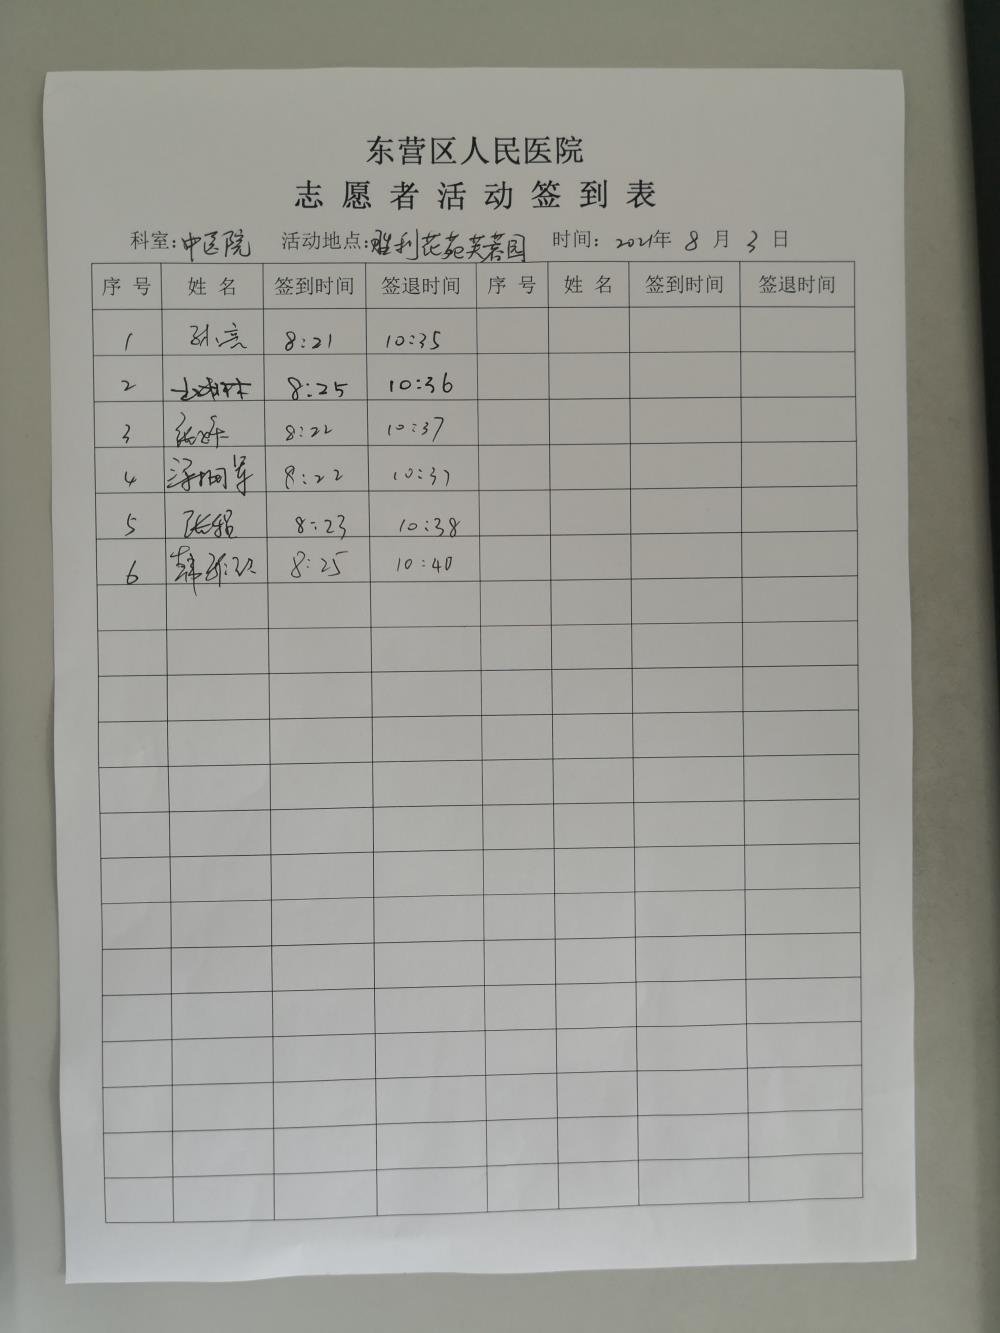 东营区人民医院
志愿者活动签到表
科室:中医院 活动地点:胜利花苑芙蓉园 时间: 2021年 8 月 3 日
序号 姓名 签到时间 签退时间 序号 姓名 签到时间 签退时间
1 孙亮 8:21 10:35
2 8:25 10:36
3 8:22 10:37
4 8:22 10:37
5 8:23 10:38
6 8:25 10:40